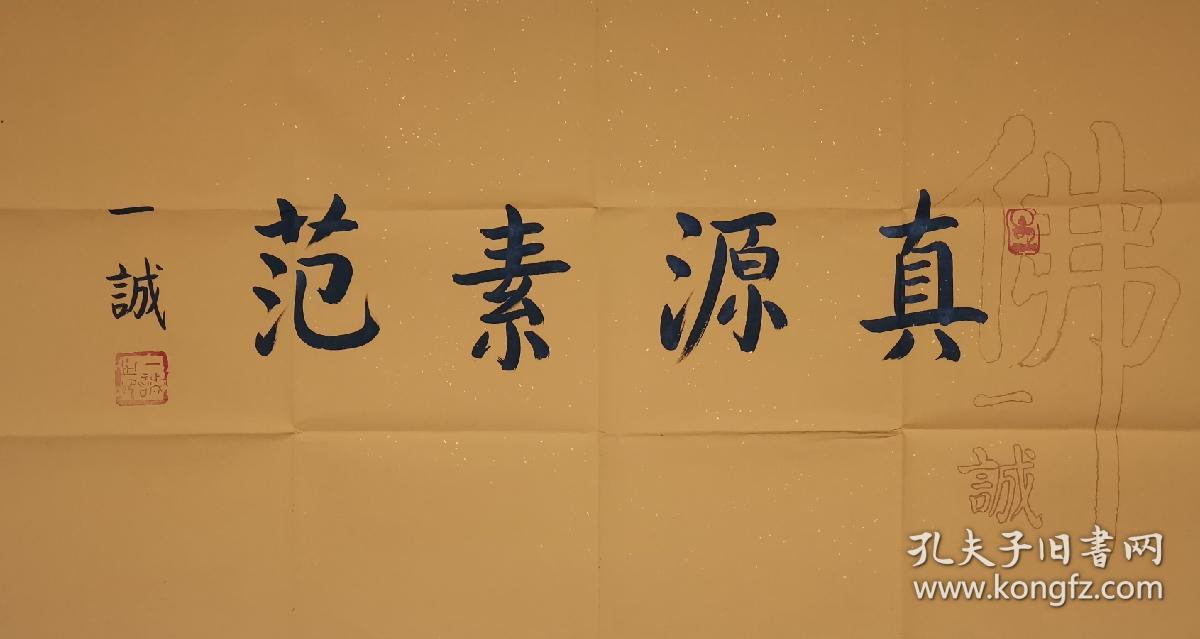 真源素范
一誠
一誠
佛
一誠
孔夫子旧書网
www.kongfz.com